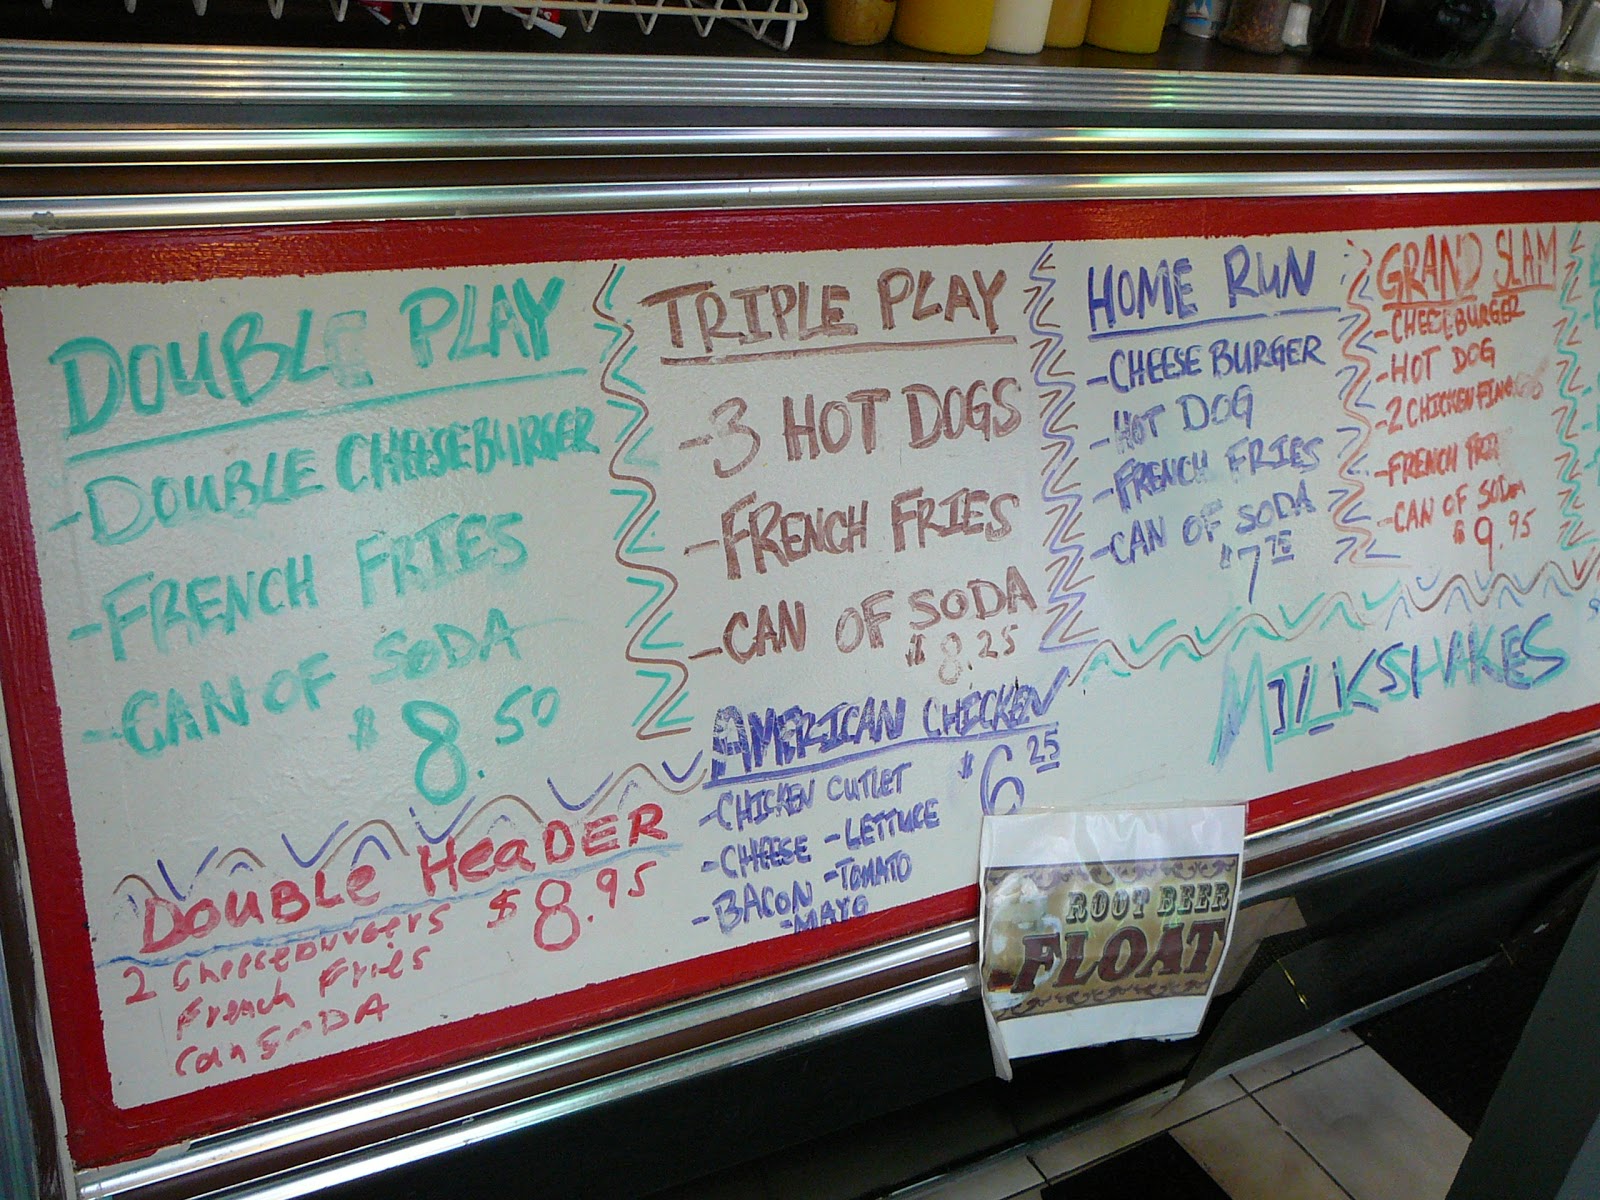 DOUBLE PLAY
-DOUBLE CHEESEBURGER
-FRENCH FRIES
-CAN OF SODA
$8.50
TRIPLE PLAY
-3 HOT DOGS
-FRENCH FRIES
-CAN OF SODA
$8.25
HOME RUN
-CHEESE BURGER
-HOT DOG
-FRENCH FRIES
-CAN OF SODA
GRAND SLAM
-CHEESEBURGER
-HOT DOG
-2 CHICKEN
-FRENCH
-CAN OF SODA
$9.95
DOUBLE HEADER
2 Cheeseburgers $8.95
French Fries
Can SODA
AMERICAN CHICKEN
$6 25
-CHICKEN CUTLET
-CHEESE -LETTUCE
-BACON -TOMATO
-MAYO
MILKSHAKES
ROOT BEER
FLOAT